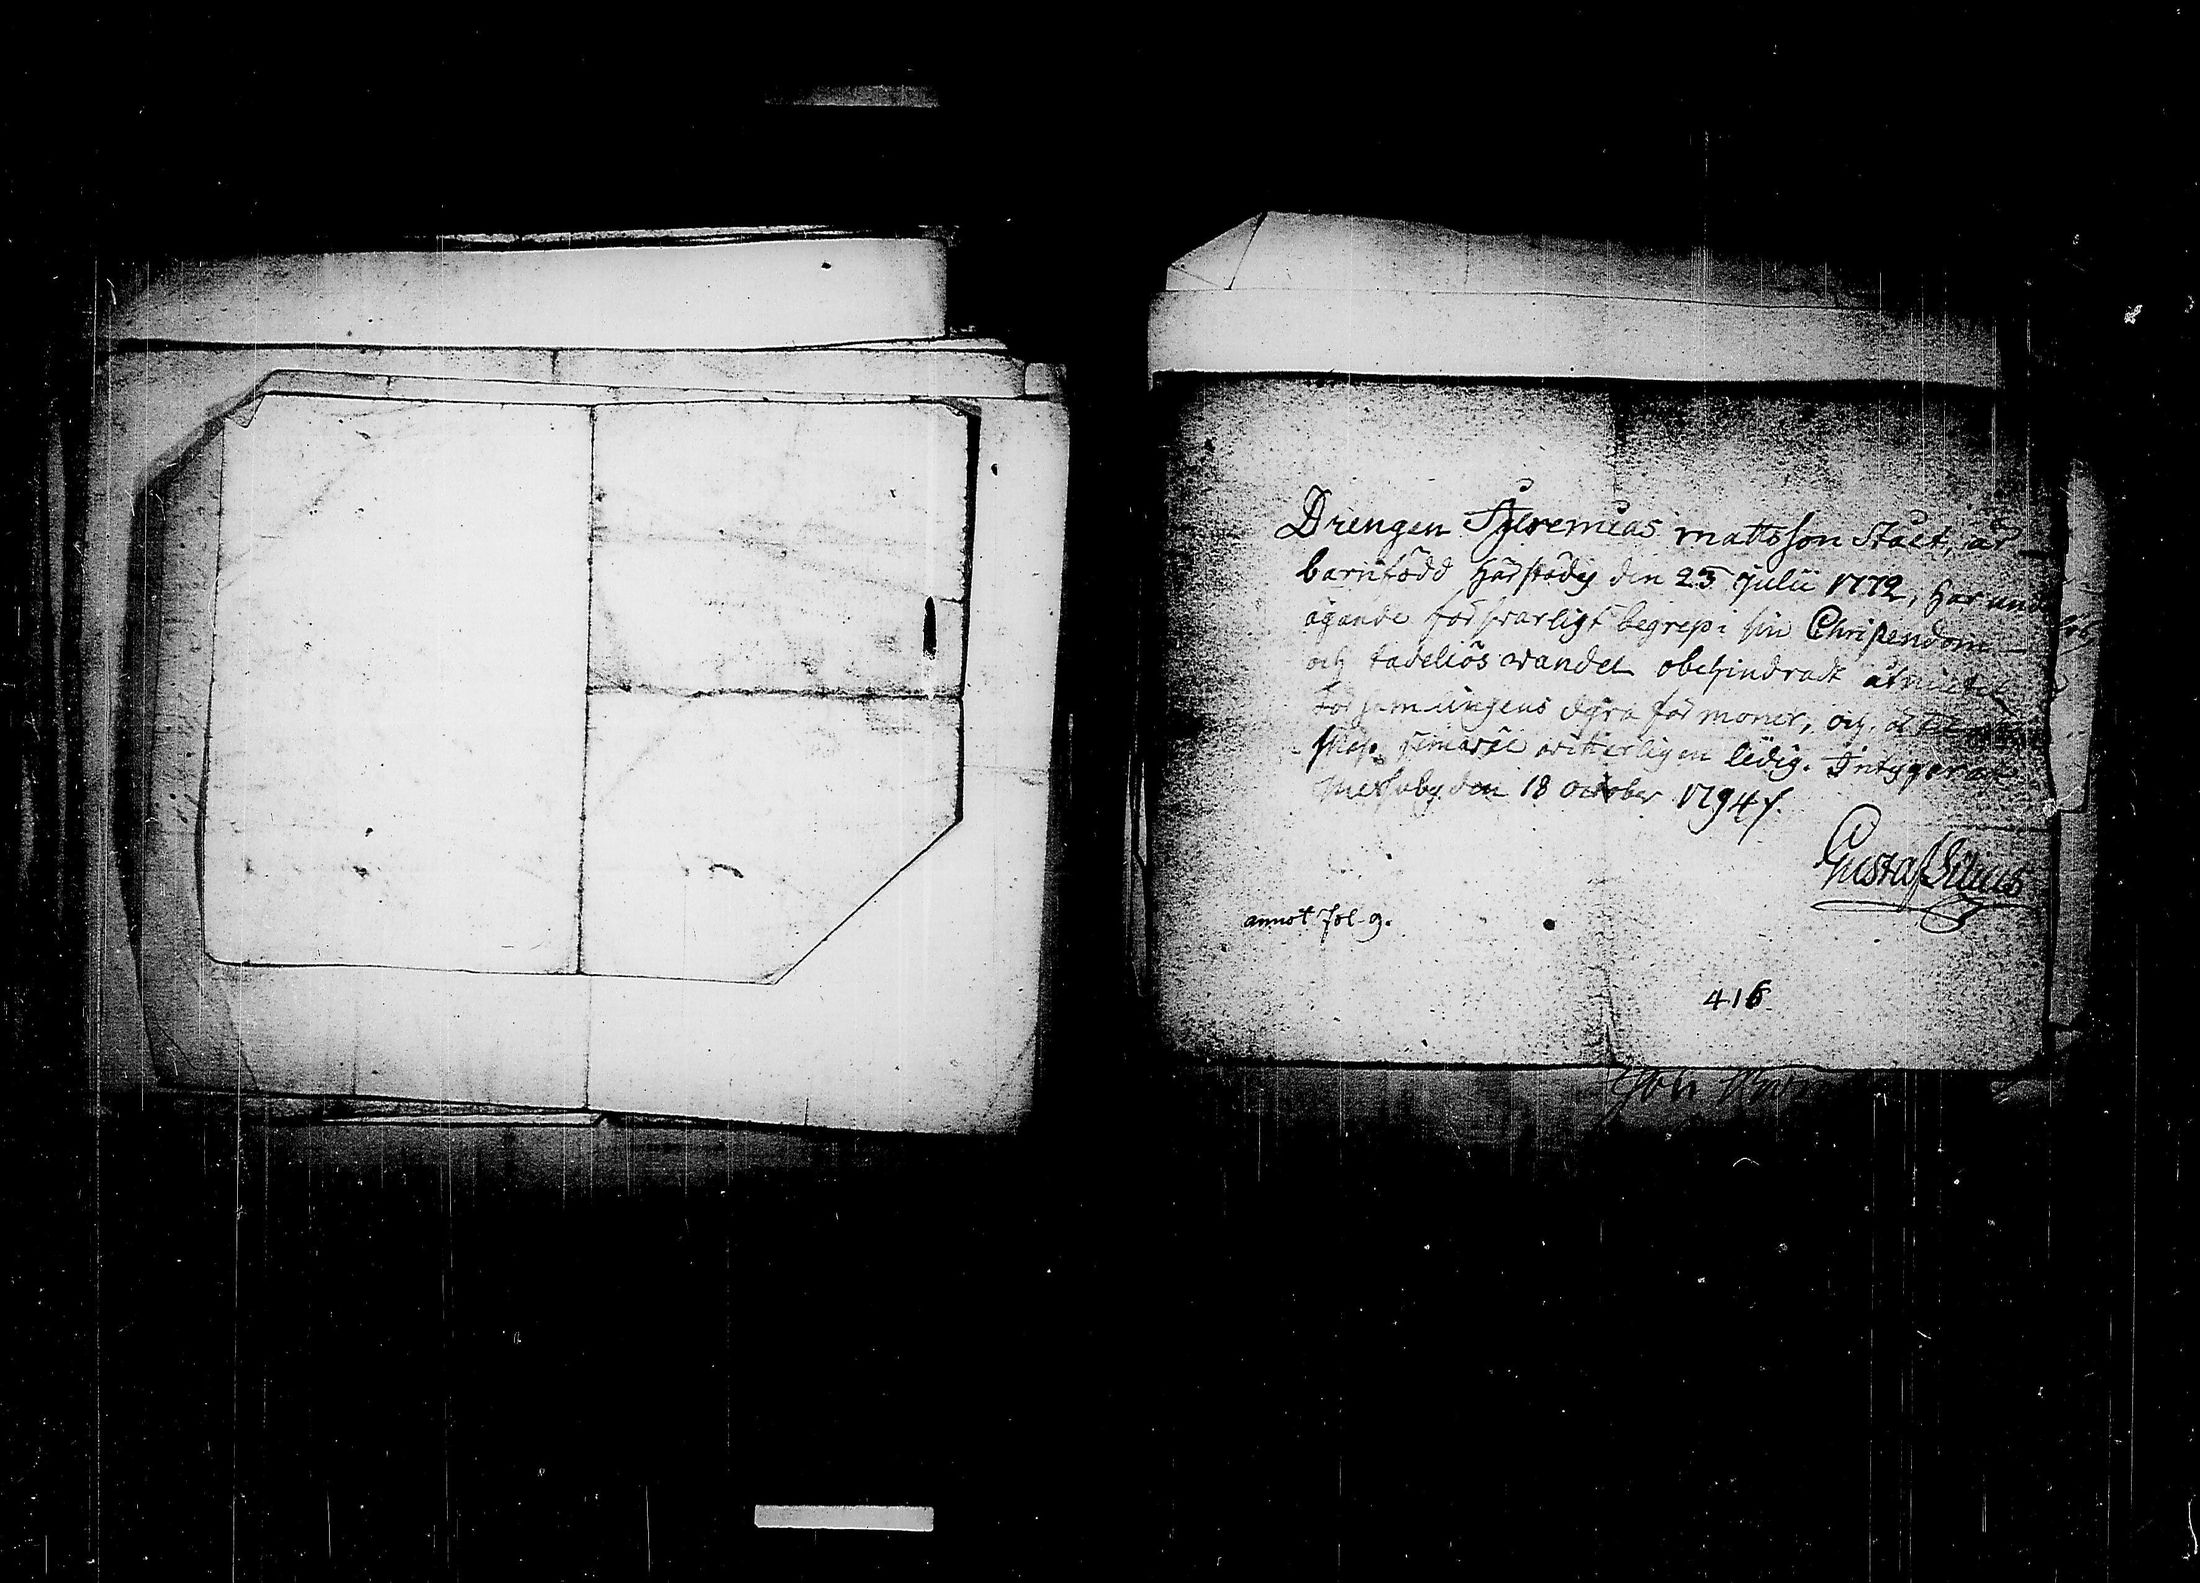 Drengen Jeremias mattsson Stält, är
barnfödd härstädes den 23 Julii 1772, har und
ägande försvarligt begrep i sin Christendom
och tadellös vandel obehindradt åtniutit
församlingens dyra förmoner, och är til
skap hemåt vitterligen ledig. Intygerar
den 18 october 1794.
Gustaf
annot fol. 9.
416